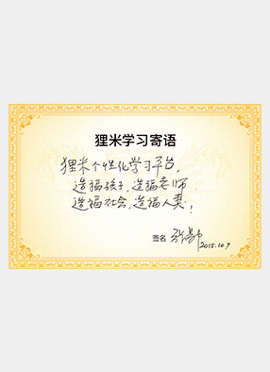 狸米学习寄语
狸米个性化学习平台,
造福孩子,造福老师
造福社会,造福人类!
签名
2018.10.9